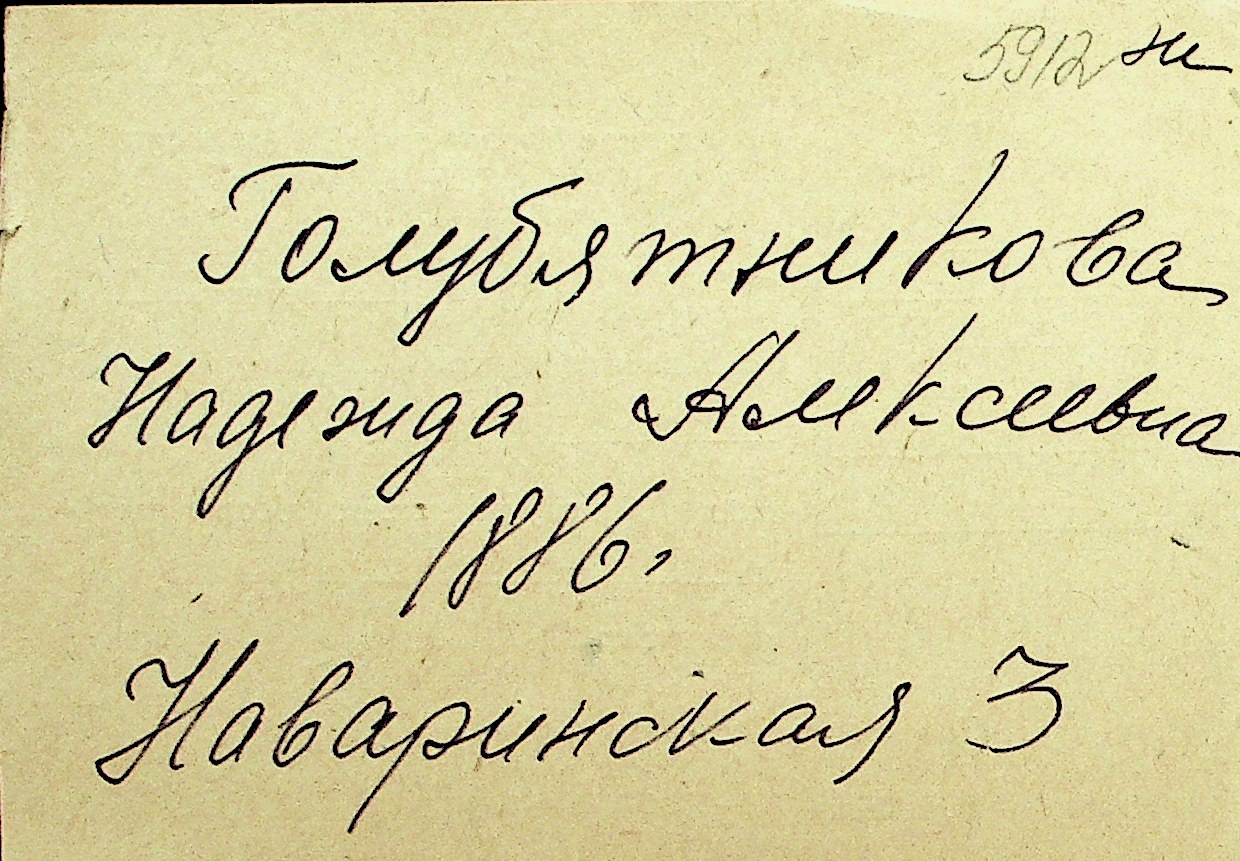 5912 ж
Голубятникова
Надежда Алексеевна
1886.
Наваринская 3